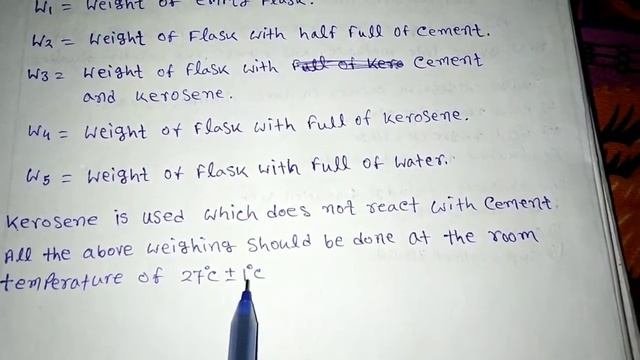 W1 = Weight of empty flask.
W2 = Weight of Flask with half full of cement.
W3 = Weight of flask with cement
and kerosene.
W4 = Weight of flask with full of kerosene.
W5 = Weight of flask with full of water.
Kerosene is used which does not react with cement
All the above weighing should be done at the room
temperature of 27°c ± 1°c